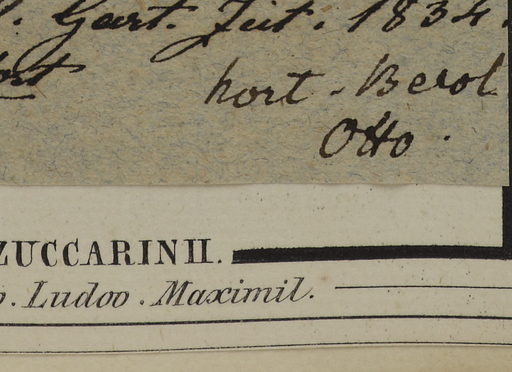 . Gart. Zeit. 1834.
ort hort. Berol
Otto.
ZUCCARINII.
o. Ludov. Maximil.